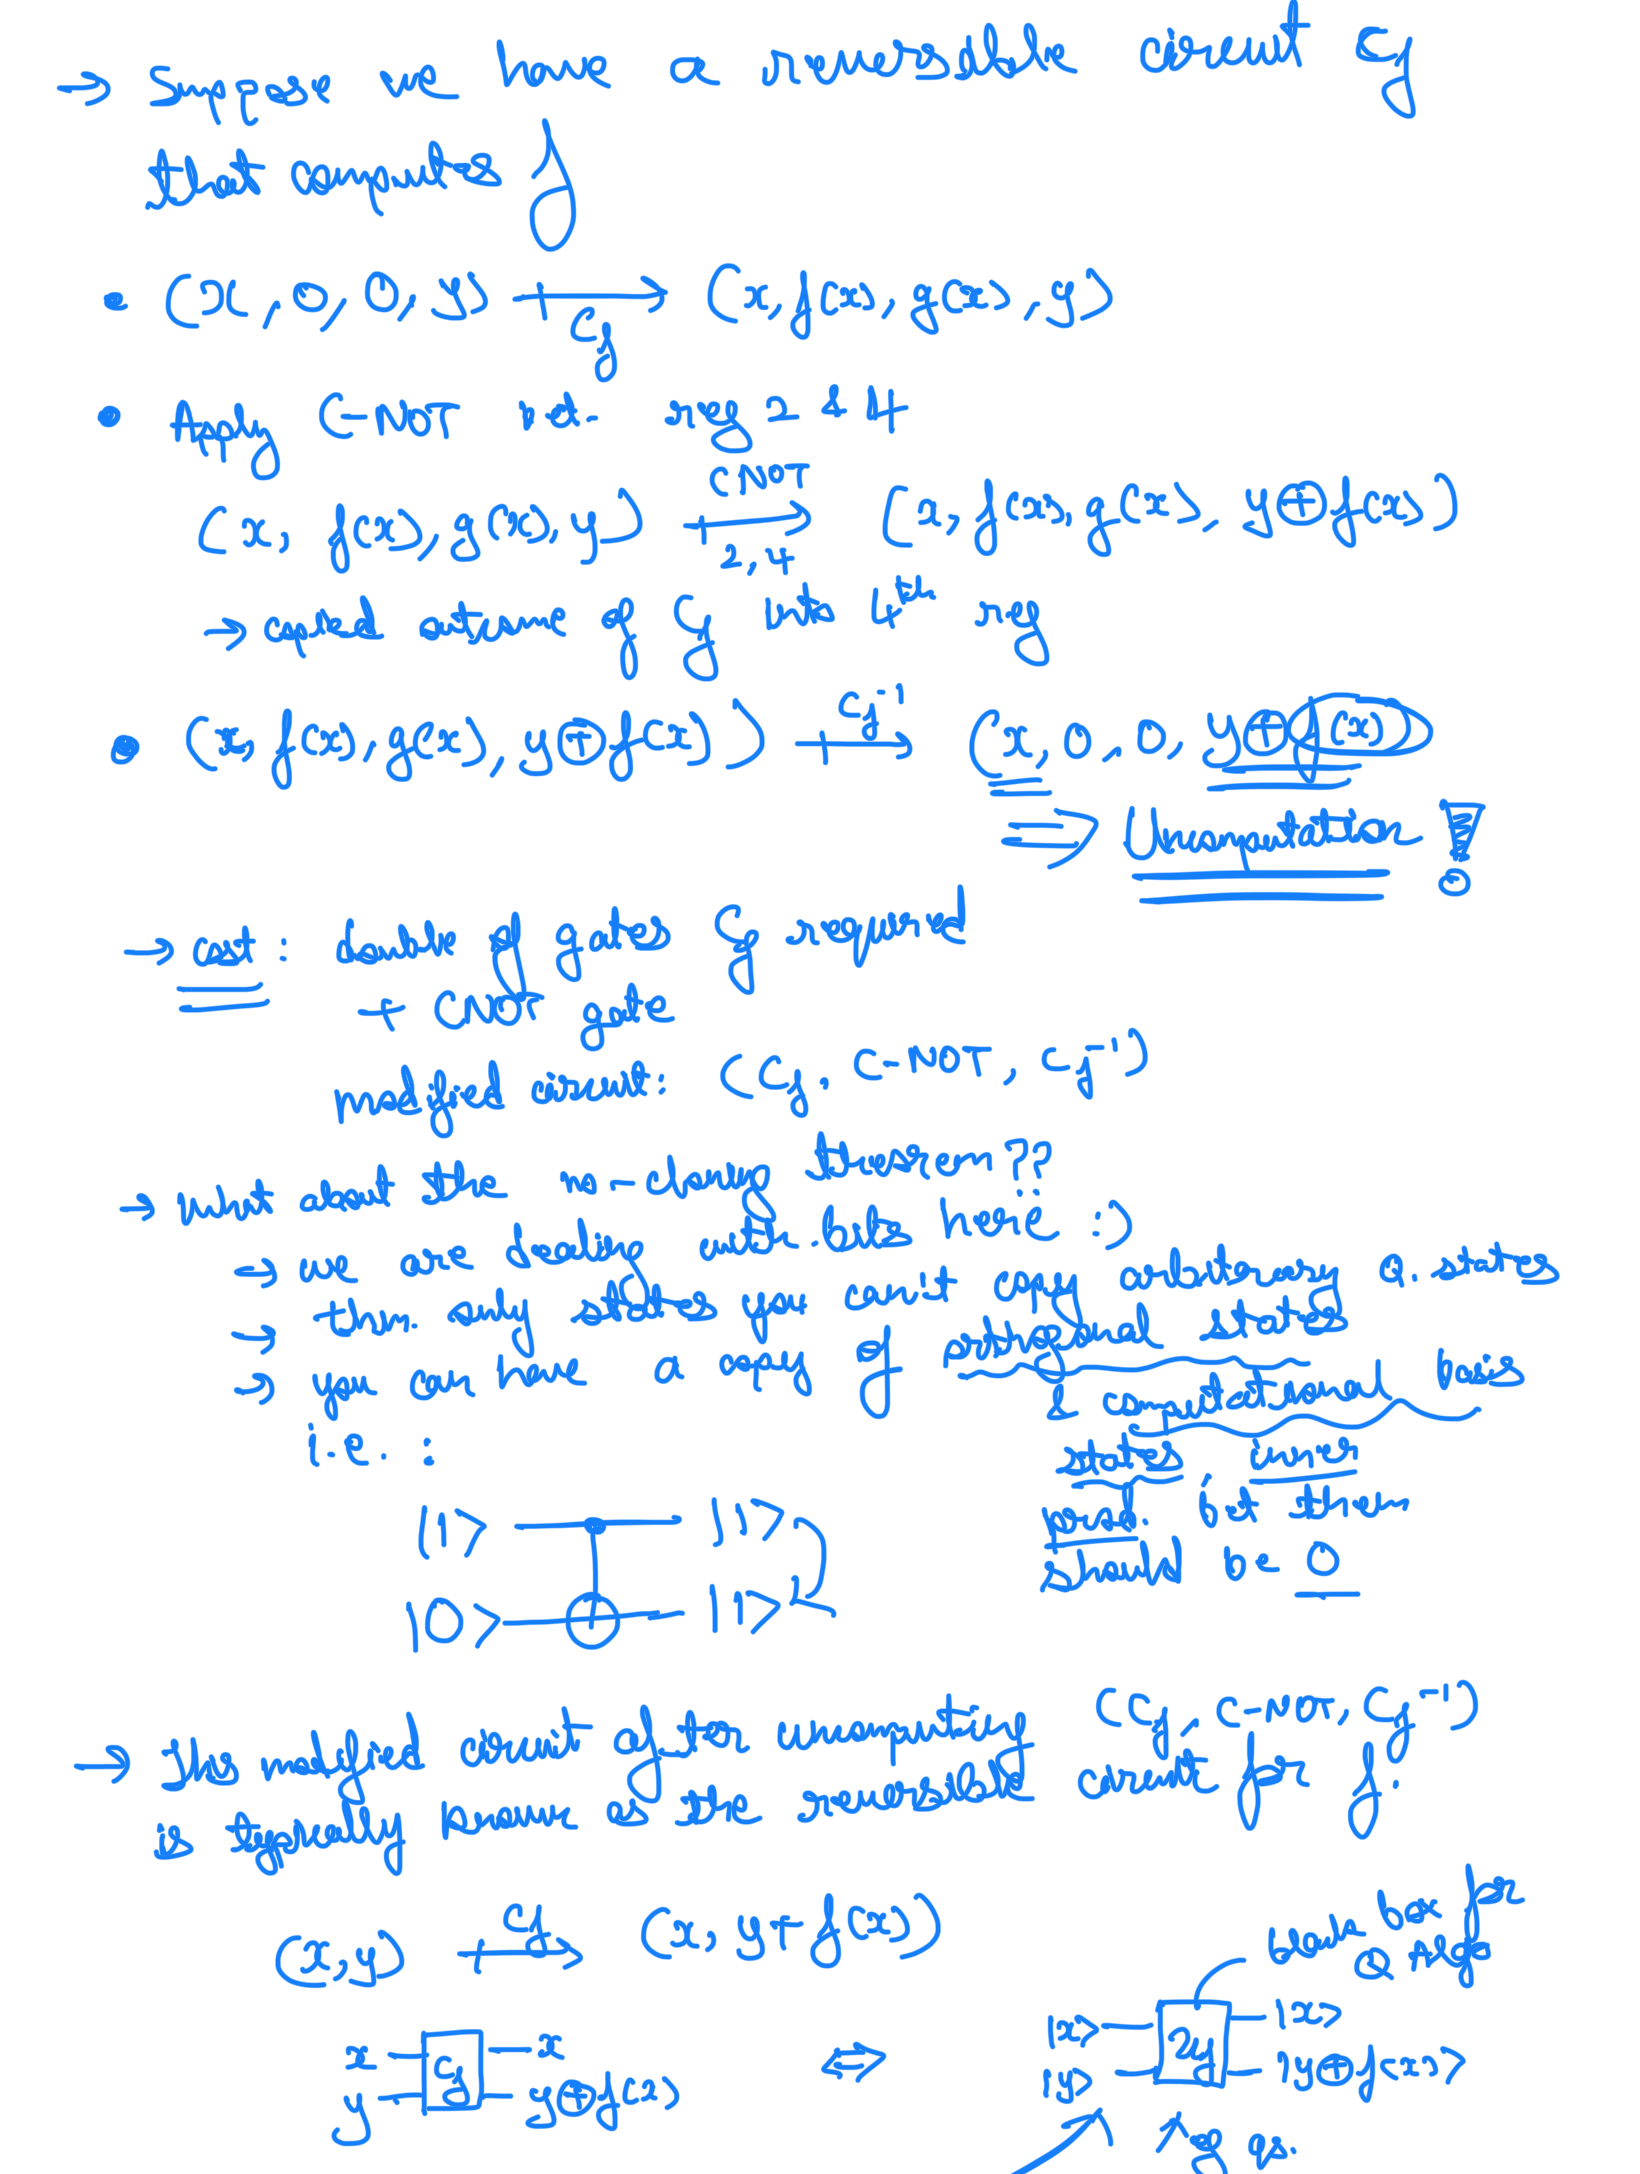 → Suppose we have a reversible circuit Cf
that computes f
• (x, 0, 0, y) ↦ Cf (x, f(x), g(x), y)
• Apply C-NOT bet. reg 2 & 4
(x, f(x), g(x), y) ↦ CNOT 2,4 (x, f(x), g(x), y⊕f(x))
→ copied outcome of Cf into 4th reg
• (x, f(x), g(x), y⊕f(x)) ↦ Cf⁻¹ (x, 0, 0, y⊕f(x))
⇒ Uncomputation !
→ cost: double of gates Cf required
+ CNOT gate
modified circuit: (Cf, C-NOT, Cf⁻¹)
→ What about the no-cloning theorem??
→ we are dealing with bits here :)
→ thm. only states you can't copy arbitrary Q. states
→ you can have a copy of orthogonal states
& computational basis
states inner
prod. bet them
should be 0
i.e. :
|1> |1>
|0> |1>
→ This modified circuit after uncomputing (Cf, C-NOT, Cf⁻¹)
is typically known as the reversible circuit for f.
(x,y) ↦ Cf (x, y+f(x))
black box for
Q Algo
x Cf x ⇔ |x> Uf |x>
y y⊕f(x) |y> |y⊕f(x)>